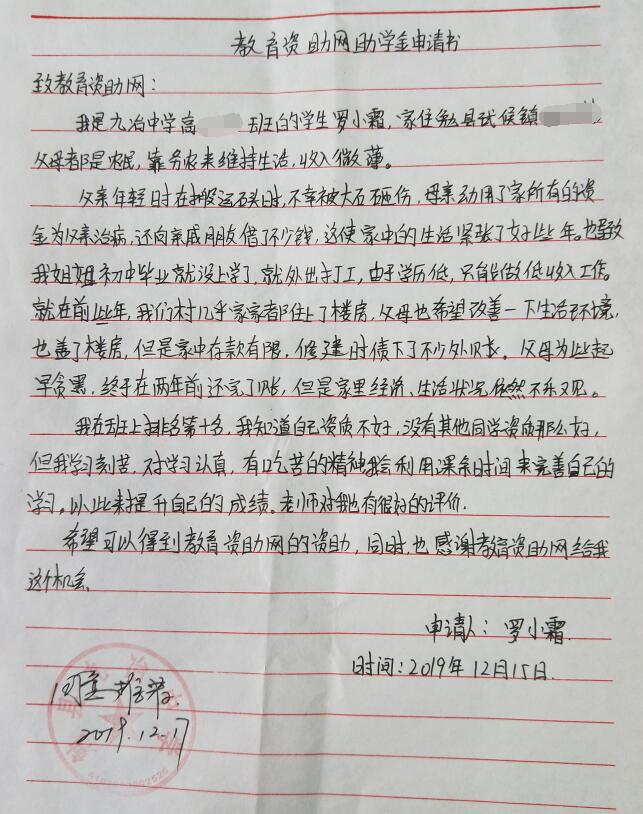 教育资助网助学金申请书
致教育资助网：
我是九冶中学高 班的学生罗小霜，家住勉县武侯镇
父母都是农民，靠务农来维持生活，收入微薄。
父亲年轻时在搬运石头时，不幸被大石砸伤，母亲动用了家所有的资
金为父亲治病，还向亲戚朋友借了不少钱，这使家中的生活紧张了好些年。也导致
我姐姐初中毕业就没上学了，就外出打工，由于学历低，只能做低收入工作。
就在前些年，我们村几乎家家都住上了楼房，父母也希望改善一下生活环境，
也盖了楼房，但是家中存款有限，修建时债下了不少外账。父母为此起
早贪黑，终于在两年前还完了账，但是家里经济、生活状况依然不乐观。
我在班上排名第十名，我知道自己资质不好，没有其他同学资质那么好，
但我学习刻苦，对学习认真，有吃苦的精神我会利用课余时间来完善自己的
学习。以此来提升自己的成绩。老师对我也有很好的评价.
希望可以得到教育资助网的资助，同时，也感谢教育资助网给我
这个机会。
申请人：罗小霜
时间：2019年12月15日.
同意推荐.
2019.12.17